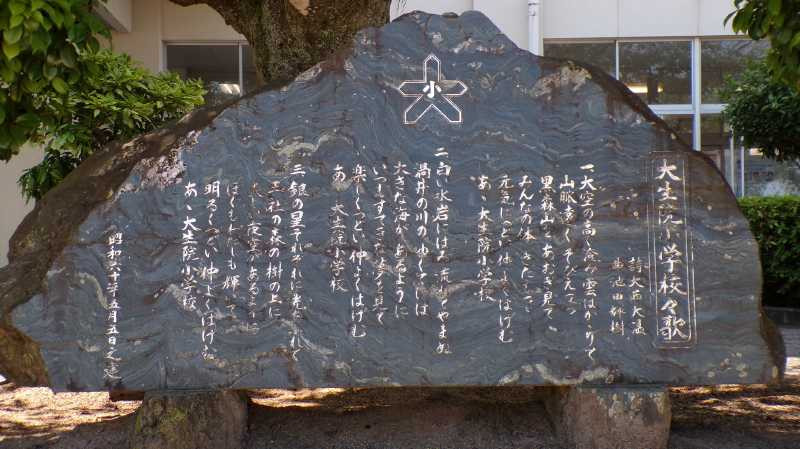 小
大生院小学校々歌
詩 大西大
曲 池田
一、大空の高 雲はか
山脈青くそびえてる
黒森山をあおぎ見て
みんなの体きたえ
元気に 仲よくはげむ
あゝ大生院小学校
二、白い 岩にはね 流れもやまぬ
渦井の川の
大きな海があるように
いつもすてきな夢を見て
楽しくつどい仲よくはげむ
あゝ大生院小学校
三、銀の星 それぞれに光 れて
正法寺の森の樹の上に
夜空があるように
ぼくもわたしも輝いて
明るくつどい仲よくはげむ
あゝ大生院小学校
昭和六十年五月五日之建